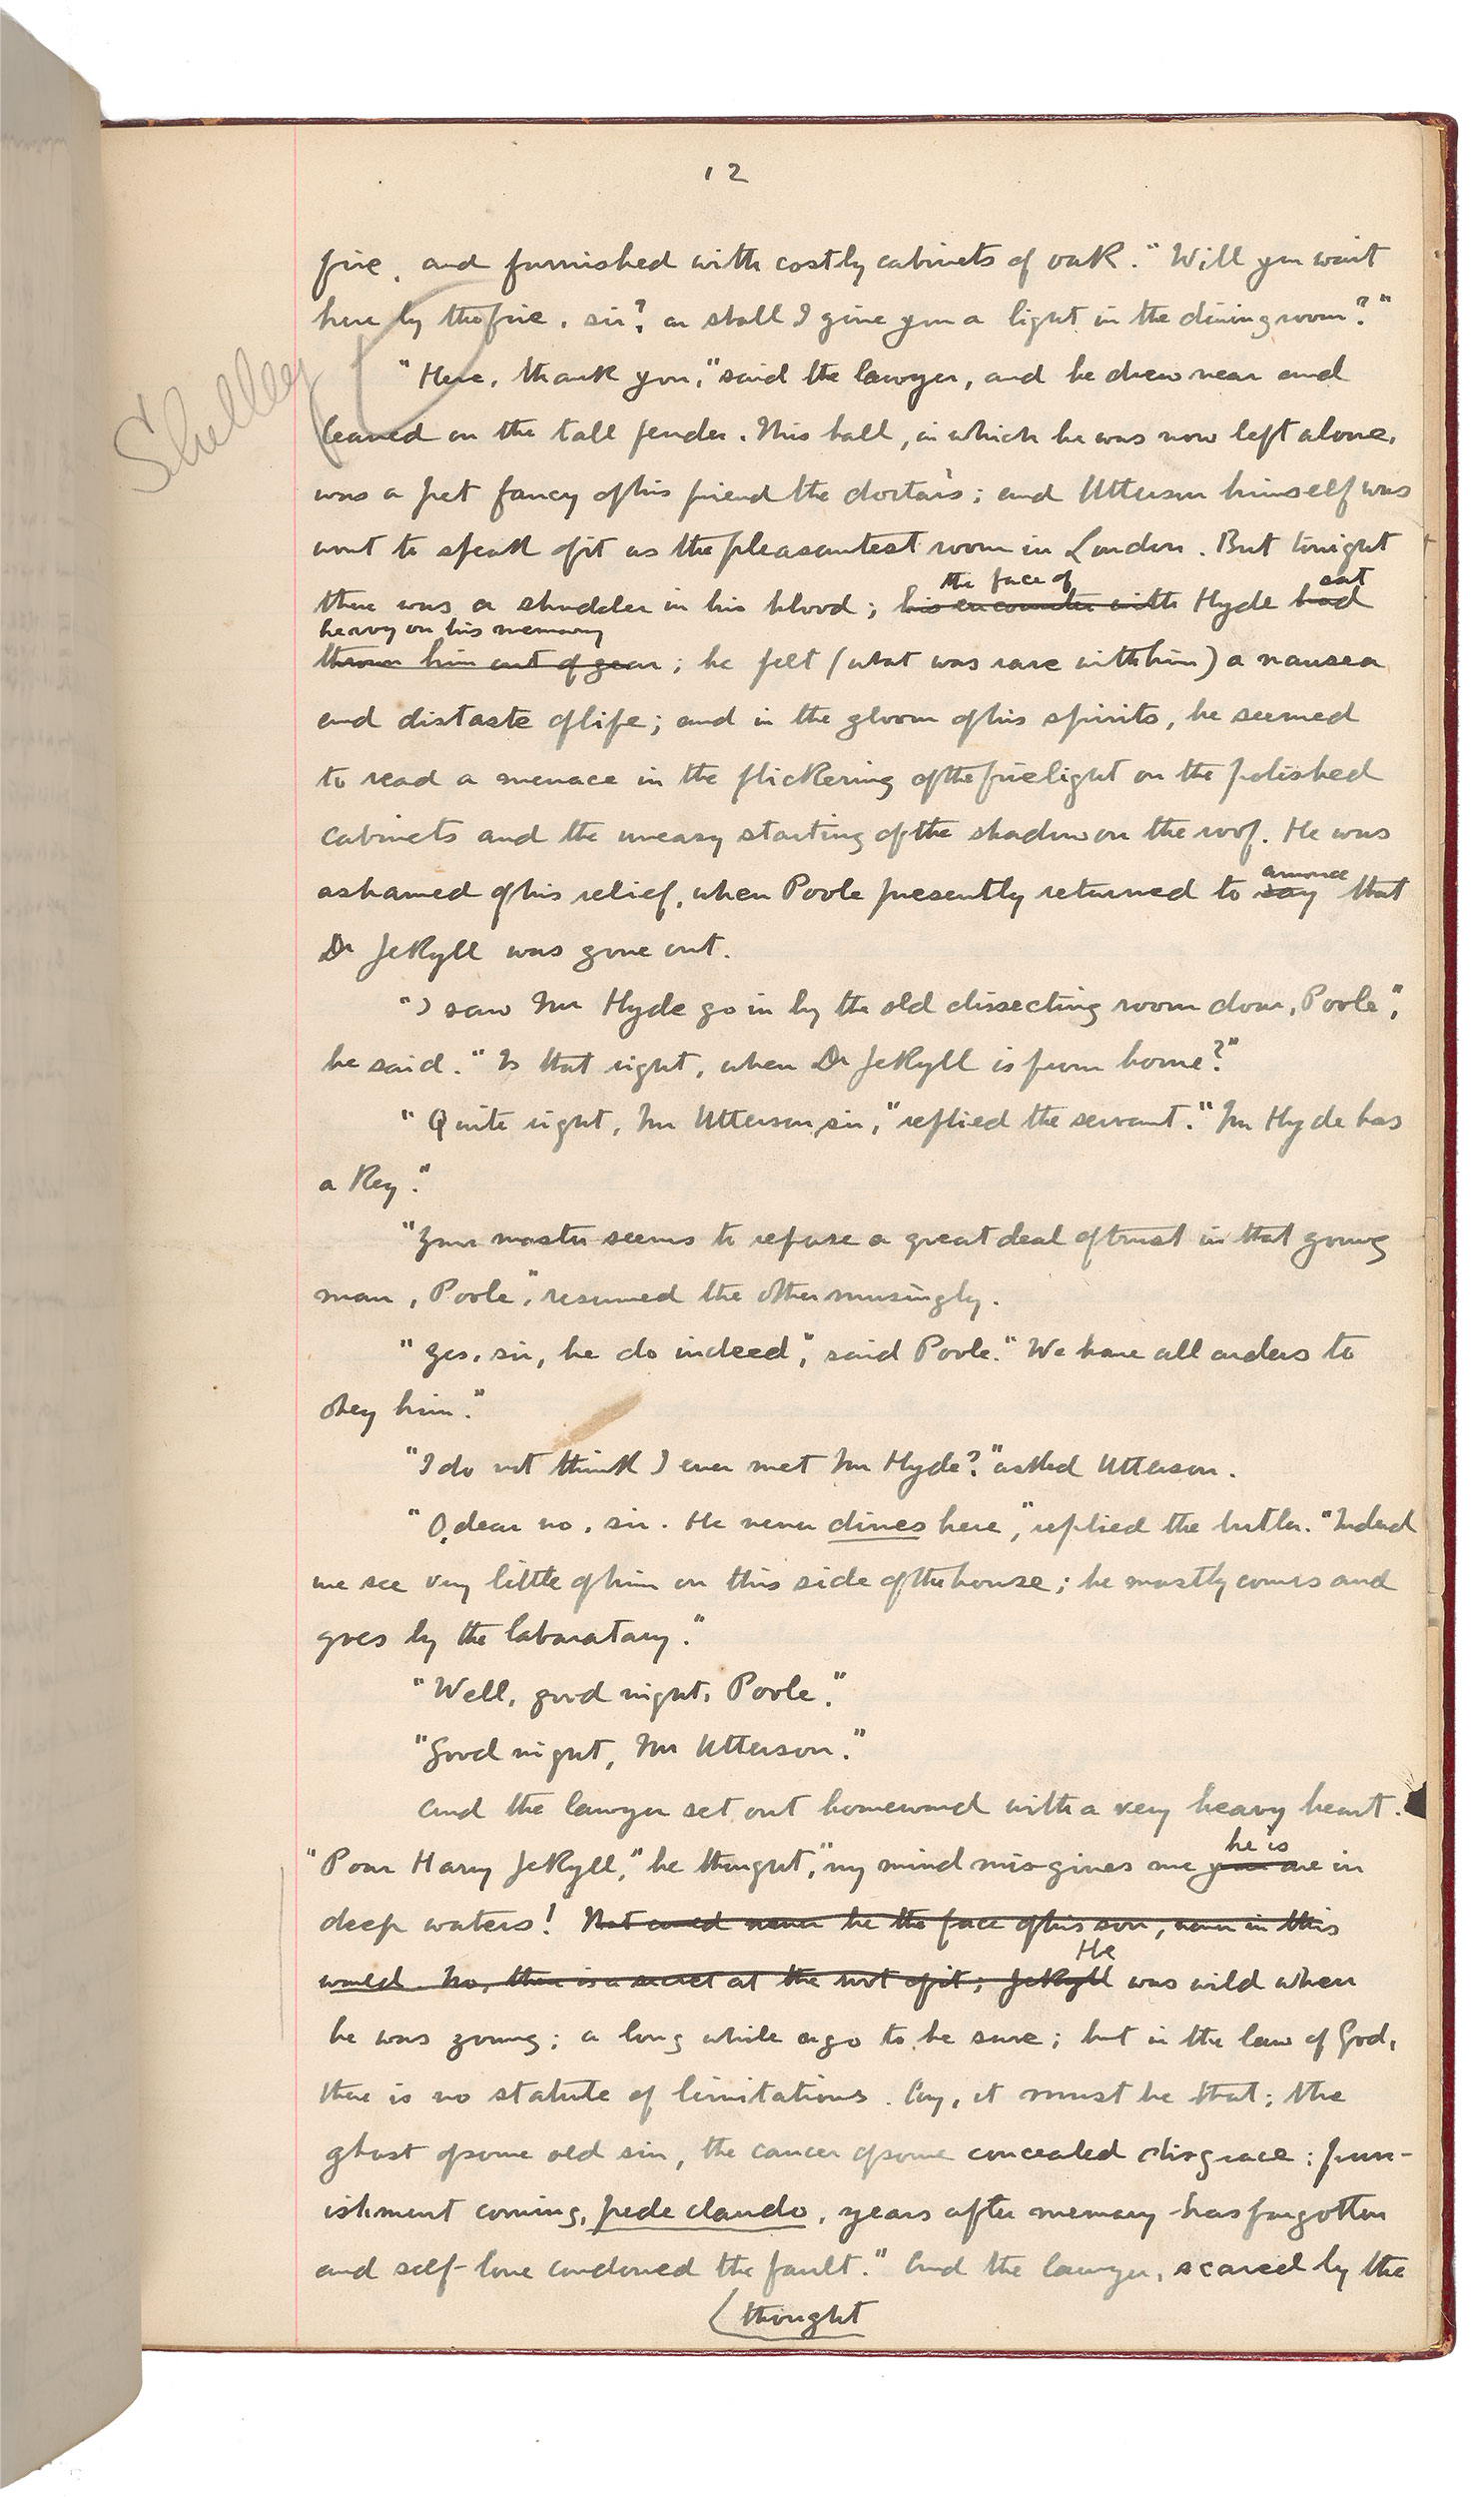 12
fire, and furnished with costly cabinets of oak. "Will you wait
here by the fire, sir? or shall I give you a light in the dining room?"
Shelley
"Here, thank you," said the lawyer, and he drew near and
leaned on the tall fender. This hall, in which he was now left alone,
was a pet fancy of his friend the doctor's; and Utterson himself was
wont to speak of it as the pleasantest room in London. But tonight
the face of sat
there was a shudder in his blood; his encounter with Hyde had
heavy on his memory
thrown him out of gear; he felt (what was rare with him) a nausea
and distaste of life; and in the gloom of his spirits, he seemed
to read a menace in the flickering of the firelight on the polished
cabinets and the uneasy starting of the shadow on the roof. He was
announce
ashamed of his relief, when Poole presently returned to say that
Dr Jekyll was gone out.
"I saw Mr Hyde go in by the old dissecting room door, Poole,"
he said. "Is that right, when Dr Jekyll is from home?"
"Quite right, Mr Utterson, sir," replied the servant. "Mr Hyde has
a key."
"Your master seems to repose a great deal of trust in that young
man, Poole," resumed the other musingly.
"Yes, sir, he do indeed," said Poole. "We have all orders to
obey him."
"I do not think I ever met Mr Hyde?" asked Utterson.
"O, dear no, sir. He never dines here," replied the butler. "Indeed
we see very little of him on this side of the house; he mostly comes and
goes by the laboratary."
"Well, good night, Poole."
"Good night, Mr Utterson."
And the lawyer set out homeward with a very heavy heart.
he is
"Poor Harry Jekyll," he thought, "my mind misgives me you are in
deep waters! That could never be the face of his son, never in this
He
world. No, there is a secret at the root of it; Jekyll was wild when
he was young; a long while ago to be sure; but in the law of God,
there is no statute of limitations. Ay, it must be that; the
ghost of some old sin, the cancer of some concealed disgrace: pun-
ishment coming, pede claudo, years after memory has forgotten
and self-love condoned the fault." And the lawyer, scared by the
thought